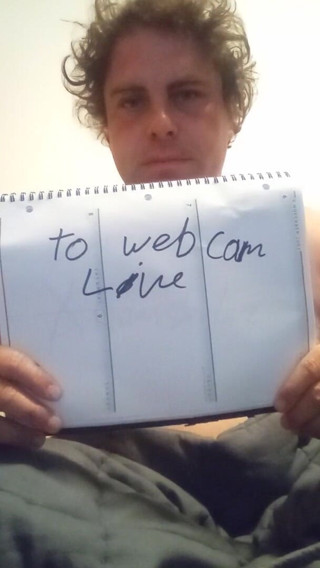 to web cam
Live